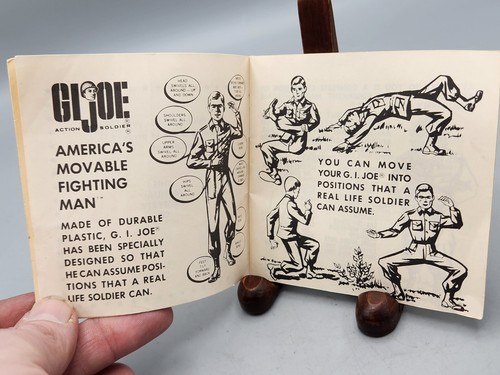 GIJOE®
ACTION SOLDIER®
AMERICA'S
MOVABLE
FIGHTING
MAN™
MADE OF DURABLE
PLASTIC, G. I. JOE®
HAS BEEN SPECIALLY
DESIGNED SO THAT
HE CAN ASSUME POSI-
TIONS THAT A REAL
LIFE SOLDIER CAN.
HEAD
SWIVELS ALL
AROUND - UP
AND DOWN
SHOULDERS
SWIVEL ALL
AROUND
UPPER
ARMS
SWIVEL ALL
AROUND
HIPS
SWIVEL ALL
AROUND
FEET
TILT
FORWARD
AND BACK
YOU CAN MOVE
YOUR G. I. JOE® INTO
POSITIONS THAT A
REAL LIFE SOLDIER
CAN ASSUME.